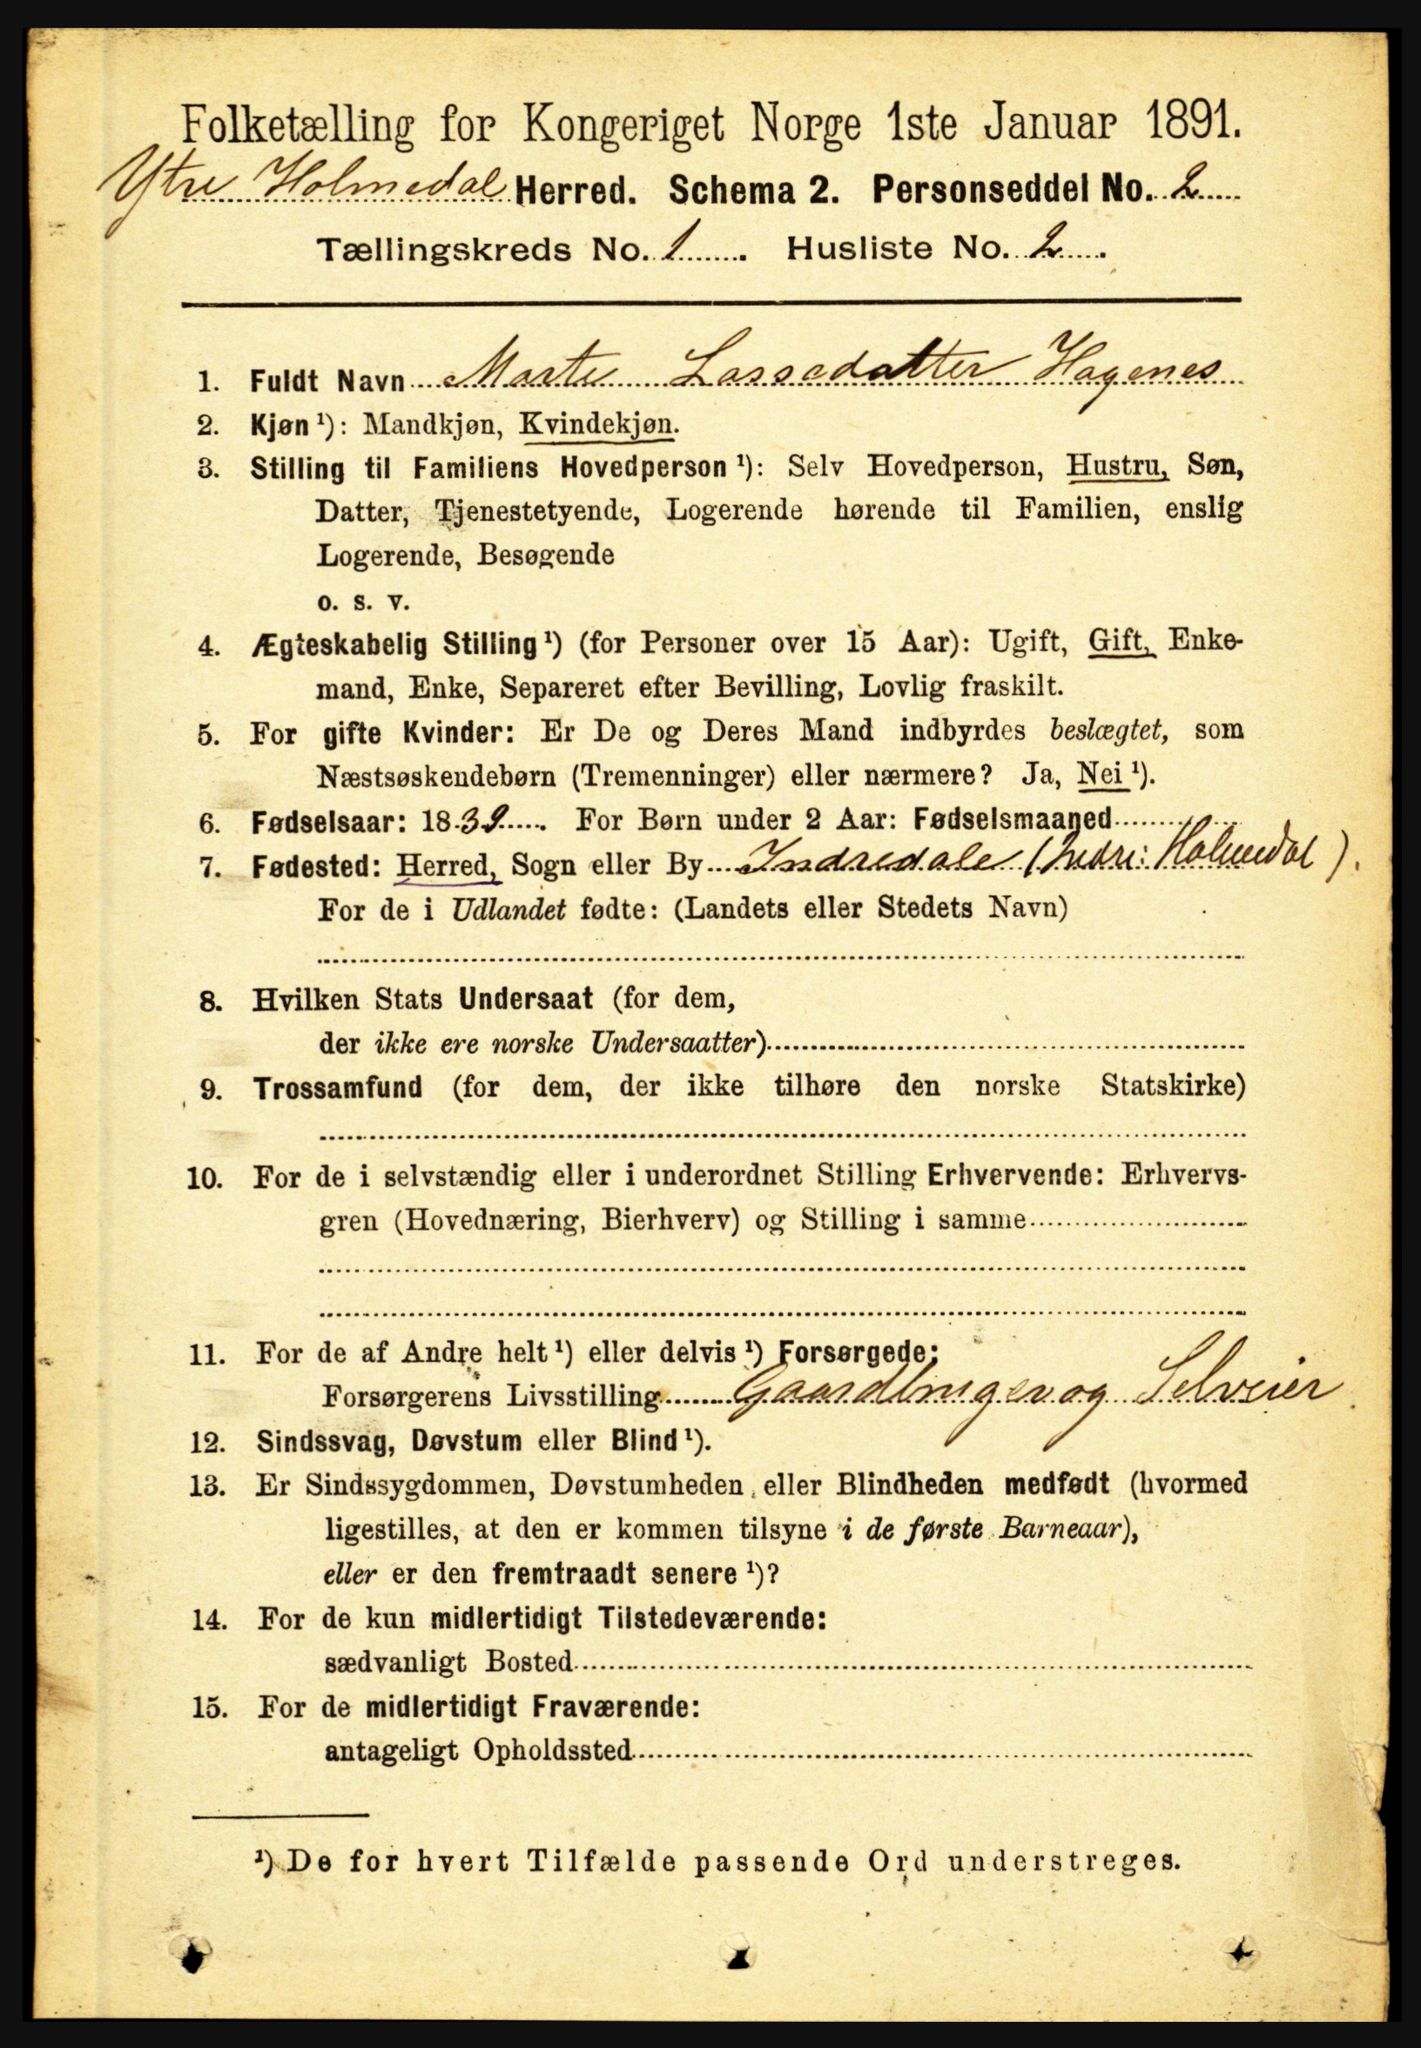 Folketælling for Kongeriget Norge 1ste Januar 1891.
Ytre Holmedal Herred. Schema 2. Personseddel No. 2
Tællingskreds No. 1. Husliste No. 2.
1. Fuldt Navn Marte Lassedatter Hagenes
2. Kjøn ¹): Mandkjøn, Kvindekjøn.
3. Stilling til Familiens Hovedperson ¹): Selv Hovedperson, Hustru, Søn,
Datter, Tjenestetyende, Logerende hørende til Familien, enslig
Logerende, Besøgende
o. s. v.
4. Ægteskabelig Stilling ¹) (for Personer over 15 Aar): Ugift, Gift, Enke-
mand, Enke, Separeret efter Bevilling, Lovlig fraskilt.
5. For gifte Kvinder: Er De og Deres Mand indbyrdes beslægtet, som
Næstsøskendebørn (Tremenninger) eller nærmere? Ja, Nei ¹).
6. Fødselsaar: 1839. For Børn under 2 Aar: Fødselsmaaned
7. Fødested: Herred, Sogn eller By Indredale (Indre: Holmedal).
For de i Udlandet fødte: (Landets eller Stedets Navn)
8. Hvilken Stats Undersaat (for dem,
der ikke ere norske Undersaatter)
9. Trossamfund (for dem, der ikke tilhøre den norske Statskirke)
10. For de i selvstændig eller i underordnet Stilling Erhvervende: Erhvervs-
gren (Hovednæring, Bierhverv) og Stilling i samme
11. For de af Andre helt ¹) eller delvis ¹) Forsørgede:
Forsørgerens Livsstilling Gaardbruger og Selveier
12. Sindssvag, Døvstum eller Blind ¹).
13. Er Sindssygdommen, Døvstumheden eller Blindheden medfødt (hvormed
ligestilles, at den er kommen tilsyne i de første Barneaar),
eller er den fremtraadt senere ¹)?
14. For de kun midlertidigt Tilstedeværende:
sædvanligt Bosted
15. For de midlertidigt Fraværende:
antageligt Opholdssted
¹) De for hvert Tilfælde passende Ord understreges.